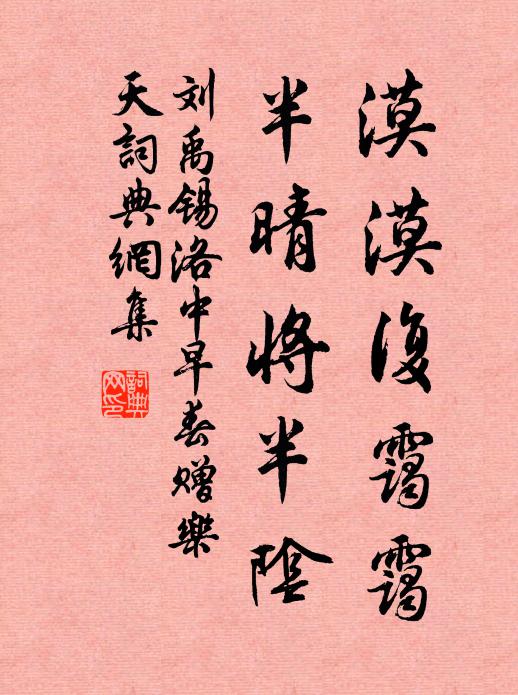 漠漠復靄靄
半晴將半陰
刘禹锡洛中早春赠樂
天詞典網集
詞典网印